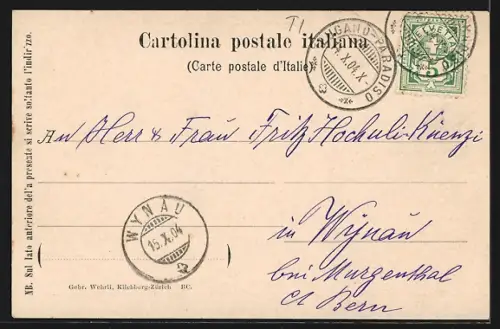 T1
Cartolina postale italiana
(Carte postale d'Italie)
LUGANO-PARADISO
X.04.X
HELVETIA
5
An Herr & Frau Fritz Hochuli-Küenzi
in Wynau
bei Murgenthal
Ct Bern
WYNAU
15.X.04
NB. Sul lato anteriore della presente si scrive soltanto l'indirizzo.
Gebr. Wehrli, Kilchberg-Zürich BC.